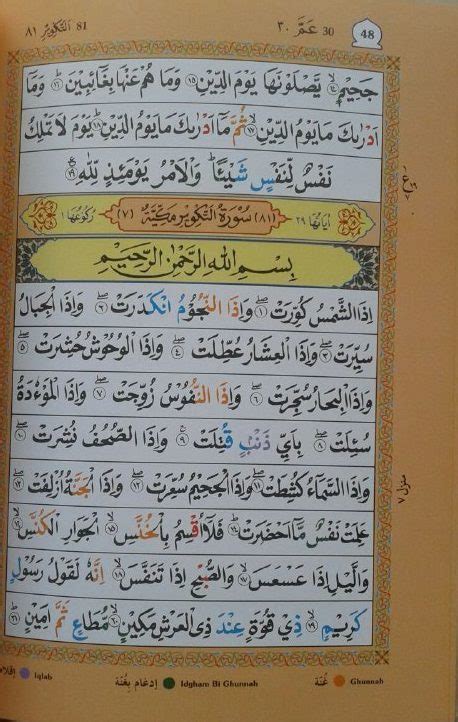 48 عَمَّ ٣٠ 30 81 اَلتَّكْوِيْر ٨١
جَحِيْمٍ ١٤ يَّصْلَوْنَهَا يَوْمَ الدِّيْنِ ١٥ وَمَا هُمْ عَنْهَا بِغَآئِبِيْنَ ١٦ وَمَآ
اَدْرٰىكَ مَا يَوْمُ الدِّيْنِ ١٧ ثُمَّ مَآ اَدْرٰىكَ مَا يَوْمُ الدِّيْنِ ١٨ يَوْمَ لَا تَمْلِكُ
نَفْسٌ لِّنَفْسٍ شَيْـًٔا وَالْاَمْرُ يَوْمَئِذٍ لِّلّٰهِ ١٩
اٰيَاتُهَا ٢٩ (٨١) سُوْرَةُ التَّكْوِيْرِ مَكِّيَّةٌ (٧) رُكُوْعُهَا ١
بِسْمِ اللّٰهِ الرَّحْمٰنِ الرَّحِيْمِ
اِذَا الشَّمْسُ كُوِّرَتْ ١ وَاِذَا النُّجُوْمُ انْكَدَرَتْ ٢ وَاِذَا الْجِبَالُ
سُيِّرَتْ ٣ وَاِذَا الْعِشَارُ عُطِّلَتْ ٤ وَاِذَا الْوُحُوْشُ حُشِرَتْ ٥
وَاِذَا الْبِحَارُ سُجِّرَتْ ٦ وَاِذَا النُّفُوْسُ زُوِّجَتْ ٧ وَاِذَا الْمَوْءٗدَةُ
سُئِلَتْ ٨ بِاَيِّ ذَنْۢبٍ قُتِلَتْ ٩ وَاِذَا الصُّحُفُ نُشِرَتْ ١٠
وَاِذَا السَّمَآءُ كُشِطَتْ ١١ وَاِذَا الْجَحِيْمُ سُعِّرَتْ ١٢ وَاِذَا الْجَنَّةُ اُزْلِفَتْ ١٣
عَلِمَتْ نَفْسٌ مَّآ اَحْضَرَتْ ١٤ فَلَآ اُقْسِمُ بِالْخُنَّسِ ١٥ الْجَوَارِ الْكُنَّسِ ١٦
وَالَّيْلِ اِذَا عَسْعَسَ ١٧ وَالصُّبْحِ اِذَا تَنَفَّسَ ١٨ اِنَّهٗ لَقَوْلُ رَسُوْلٍ
كَرِيْمٍ ١٩ ذِيْ قُوَّةٍ عِنْدَ ذِى الْعَرْشِ مَكِيْنٍ ٢٠ مُّطَاعٍ ثَمَّ اَمِيْنٍ ٢١
منزل ٧
Ghunnah غُنَّة Idgham Bi Ghunnah إدغام بِغُنَّة Iqlab